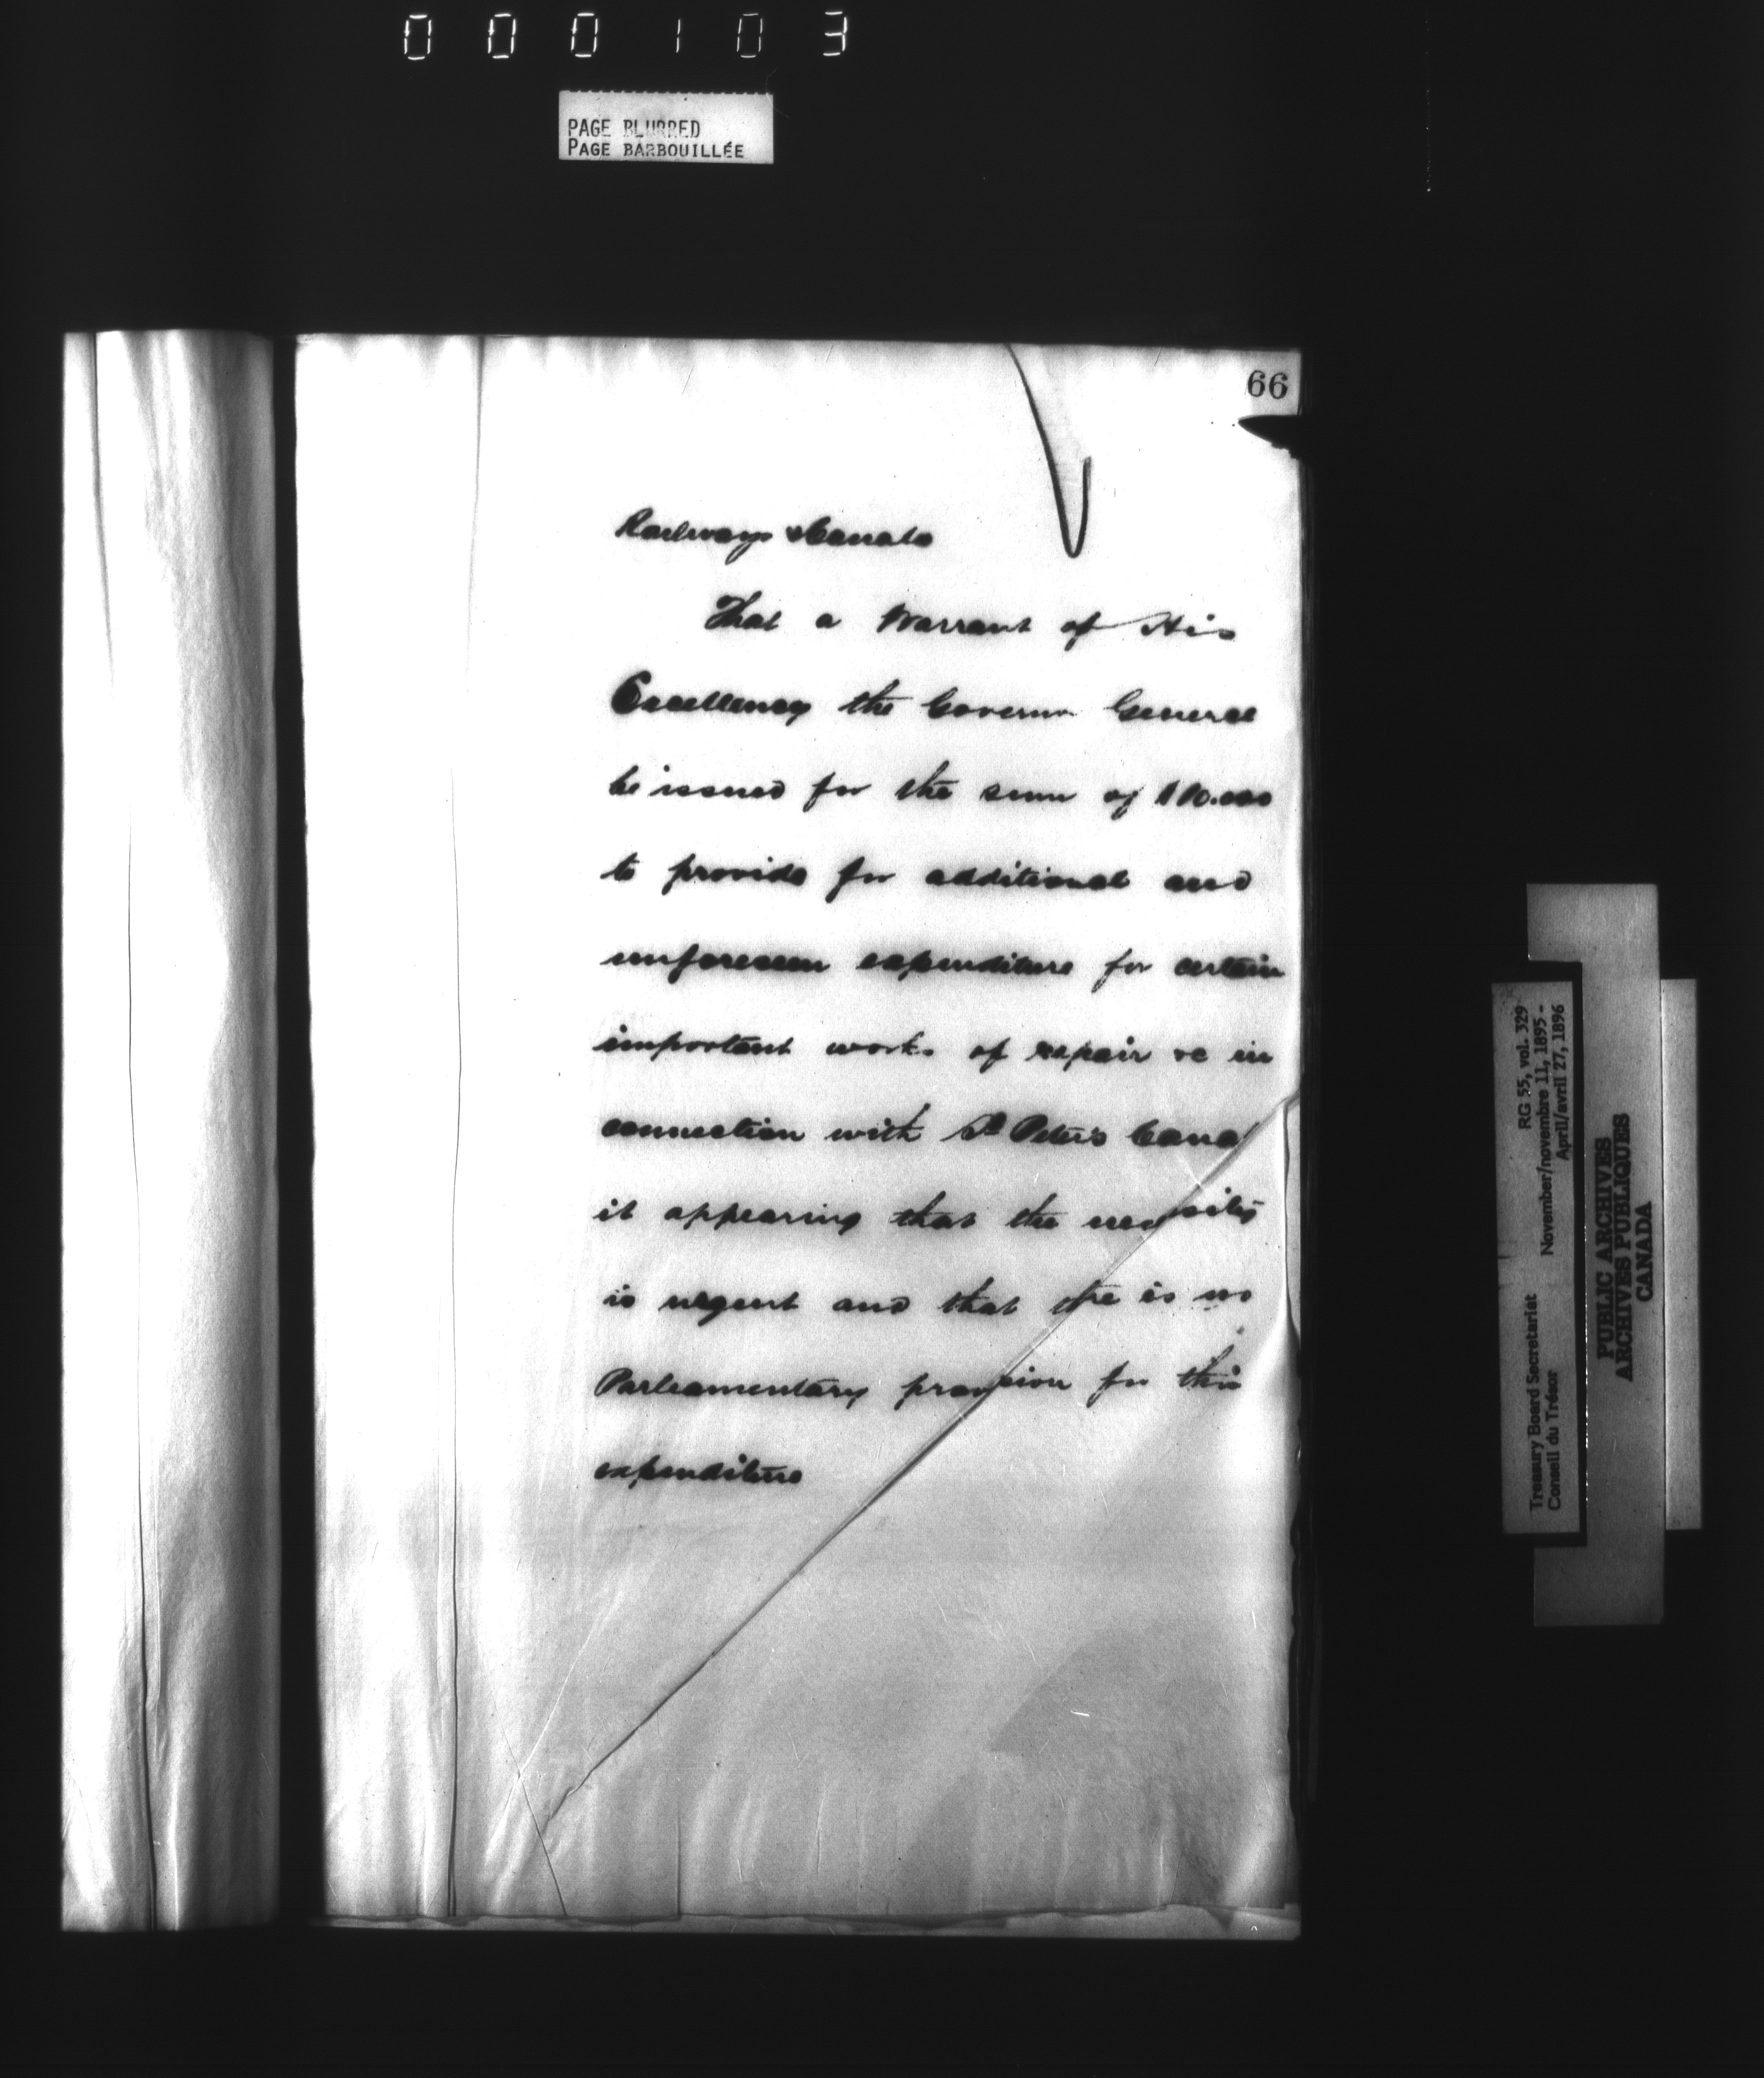 000103
PAGE BLURRED
PAGE BARBOUILLÉE
66
Railways & Canals
That a Warrant of His
Excellency the Governor General
be issued for the sum of $10.000
to provide for additional and
unforeseen expenditure for certain
important works of repair &c in
connection with St Peter's Canal
it appearing that the necessity
is urgent and that the is no
Parliamentary provision for this
expenditure
Treasury Board Secretariat RG 55, vol. 329
Conseil du Trésor November/novembre 11, 1895 -
April/avril 27, 1896
PUBLIC ARCHIVES
ARCHIVES PUBLIQUES
CANADA